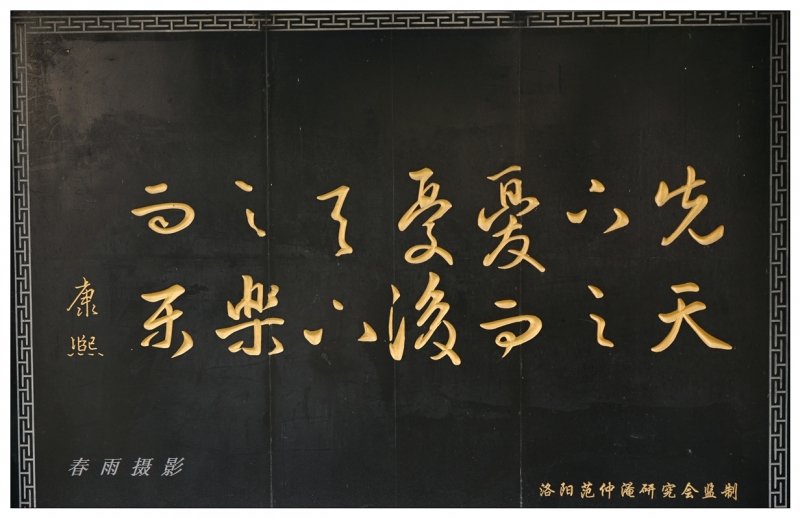 先天
下之
憂而
憂後
天下
之樂
而乐
康熙
春雨摄影
洛阳范仲淹研究会监制